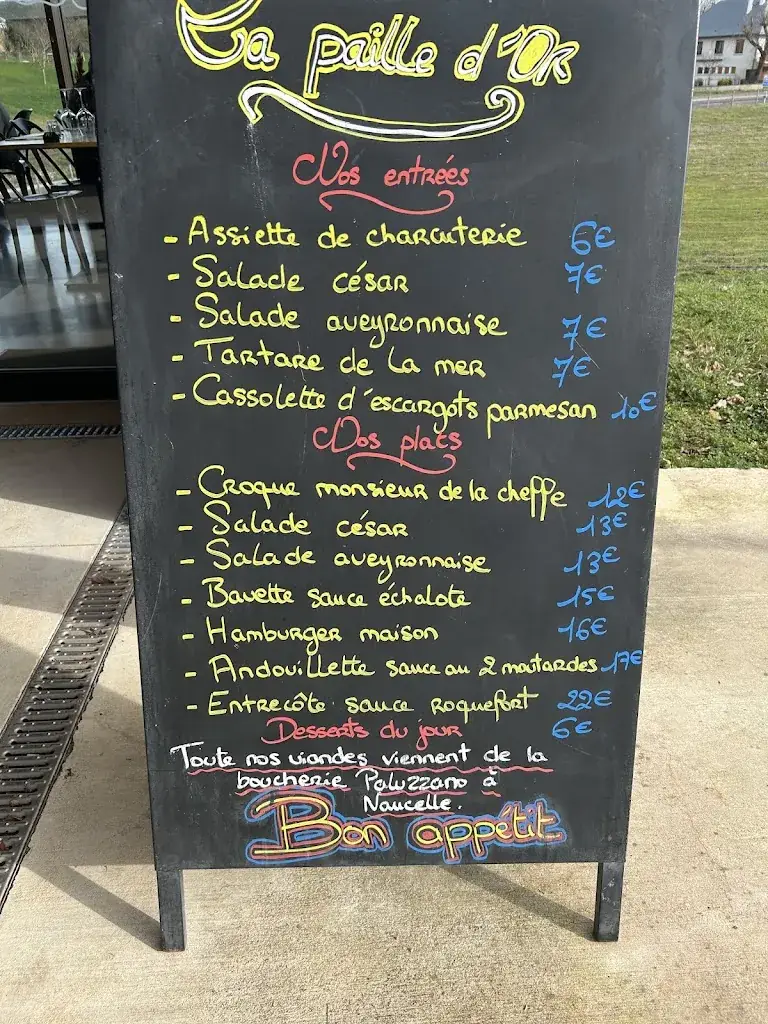 La paille d'Or
Nos entrées
- Assiette de charcuterie 6€
- Salade césar 7€
- Salade aveyronnaise 7€
- Tartare de la mer 7€
- Cassolette d'escargots parmesan 10€
Nos plats
- Croque monsieur de la cheffe 12€
- Salade césar 13€
- Salade aveyronnaise 13€
- Bavette sauce échalote 15€
- Hamburger maison 16€
- Andouillette sauce au 2 moutardes 17€
- Entrecôte sauce roquefort 22€
Desserts du jour 6€
Toute nos viandes viennent de la
boucherie Paluzzano à
Naucelle.
Bon appétit